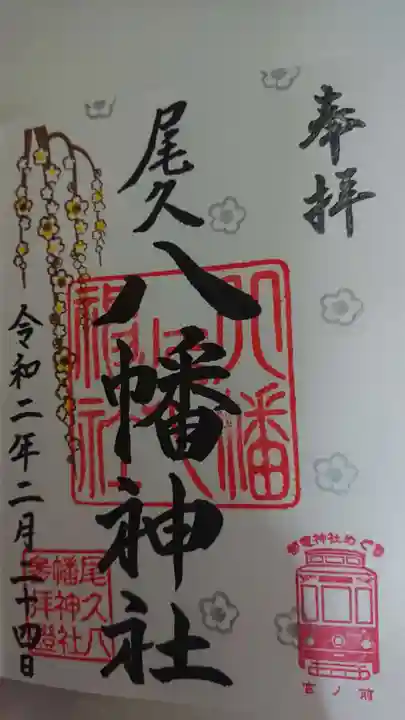 奉拝
尾久八幡神社
令和二年二月二十四日
尾久八
幡神社
参拝證
都電神社めぐり
宮ノ前